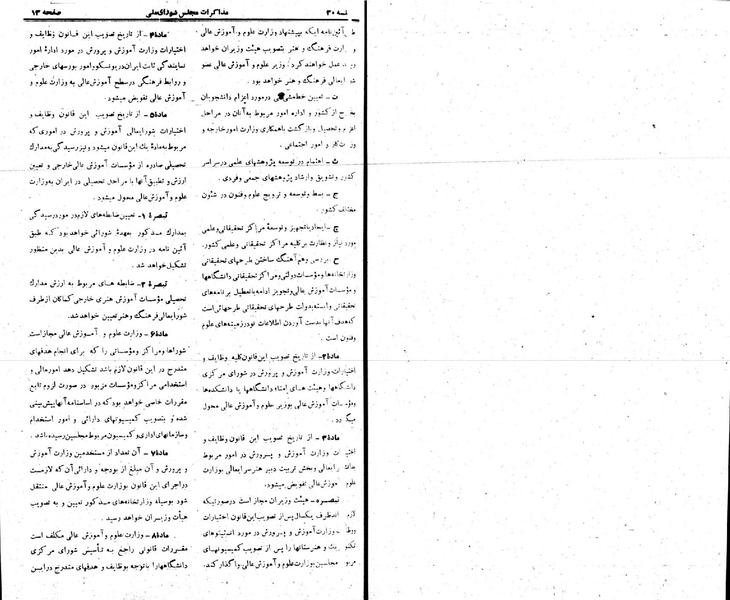 صفحه ۱۳
مذاکرات مجلس شورای ملی
جلسه ۳۰
آئین‌نامه اینکه بپیشنهاد وزارت علوم و آموزش عالی
فرهنگ و هنر بتصویب هیئت وزیران خواهد
عمل خواهند کرد. وزیر علوم و آموزش عالی عضو
شورایعالی فرهنگ و هنر خواهد بود.
ت - تعیین خط‌مشی در مورد اعزام دانشجویان
از کشور و اداره امور مربوط به آنان در مراحل
اعزام و تحصیل و بازگشت با همکاری وزارت امور خارجه و
کار و امور اجتماعی.
ث - اهتمام در توسعه پژوهشهای علمی در سراسر
کشور و تشویق و ارشاد پژوهشهای جمعی و فردی.
ج - بسط و توسعه و ترویج علوم و فنون در شئون
مختلف کشور.
چ - ایجاد یا تجهیز و توسعهٔ مراکز تحقیقاتی و علمی
مورد نیاز و نظارت بر کلیه مراکز تحقیقاتی و علمی کشور.
ح - بررسی و هم‌آهنگ ساختن طرحهای تحقیقاتی
وزارتخانه‌ها و مؤسسات دولتی و مراکز تحقیقاتی دانشگاهها
و مؤسسات آموزش عالی و تجویز ادامه یا تعطیل برنامه‌های
تحقیقاتی وابسته به دولت طرحهای تحقیقاتی طرحهائی است
که هدف آنها بدست آوردن اطلاعات نو در زمینه‌های علوم
و فنون است.
ماده ۲ - از تاریخ تصویب این قانون کلیه وظایف و
اختیارات وزارت آموزش و پرورش در شورای مرکزی
دانشگاهها و هیئت های امناء دانشگاهها یا دانشکده‌ها
و مؤسسات آموزش عالی بوزیر علوم و آموزش عالی محول
میگردد.
ماده ۳ - از تاریخ تصویب این قانون وظایف و
اختیارات وزارت آموزش و پرورش در امور مربوط
بدانشسرایعالی و بخش تربیت دبیر هنرسرایعالی بوزارت
علوم و آموزش عالی تفویض میشود.
تبصره - هیئت وزیران مجاز است در صورتیکه
لازم بداند ظرف یکسال پس از تصویب این قانون اختیارات
و وظایف وزارت آموزش و پرورش در مورد انستیتوهای
تکنولوژیک و هنرستانها را پس از تصویب کمیسیونهای
مربوط مجلسین بوزارت علوم و آموزش عالی واگذار کند.
ماده ۴ - از تاریخ تصویب این قانون وظایف و
اختیارات وزارت آموزش و پرورش در مورد ادارهٔ امور
نمایندگی ثابت ایران در یونسکو و امور بورسهای خارجی
و روابط فرهنگی در سطح آموزش عالی به وزارت علوم و
آموزش عالی تفویض میشود.
ماده ۵ - از تاریخ تصویب این قانون وظایف و
اختیارات شورایعالی آموزش و پرورش در اموری که
مربوط به مادهٔ یک این قانون میشود و نیز رسیدگی به مدارک
تحصیلی صادره از مؤسسات آموزش عالی خارجی و تعیین
ارزش و تطبیق آنها با مراحل تحصیلی در ایران به وزارت
علوم و آموزش عالی محول میشود.
تبصره ۱ - تعیین ضابطه‌های لازم در مورد رسیدگی
بمدارک مذکور بعهدهٔ شورائی خواهد بود که طبق
آئین نامه در وزارت علوم و آموزش عالی بدین منظور
تشکیل خواهد شد.
تبصره ۲ - ضابطه های مربوط به ارزش مدارک
تحصیلی مؤسسات آموزش هنری خارجی کماکان از طرف
شورایعالی فرهنگ و هنر تعیین خواهد شد.
ماده ۶ - وزارت علوم و آموزش عالی مجاز است
شوراها و مراکز و مؤسساتی را که برای انجام هدفهای
مندرج در این قانون لازم باشد تشکیل دهد امور مالی و
استخدامی مراکز و مؤسسات مزبور در صورت لزوم تابع
مقررات خاصی خواهد بود که در اساسنامه آنها پیش‌بینی
شده و بتصویب کمیسیونهای دارائی و امور استخدام
و سازمانهای اداری و کمیسیون مربوط مجلسین رسیده باشد.
ماده ۷ - آن تعداد از مستخدمین وزارت آموزش
و پرورش و آن مبلغ از بودجه و دارائی آن که لازمست
در اجرای این قانون بوزارت علوم و آموزش عالی منتقل
شود بوسیله وزارتخانه‌های مذکور تعیین و به تصویب
هیأت وزیران خواهد رسید.
ماده ۸ - وزارت علوم و آموزش عالی مکلف است
مقررات قانونی راجع به تأسیس شورای مرکزی
دانشگاهها را با توجه بوظایف و هدفهای مندرج در این